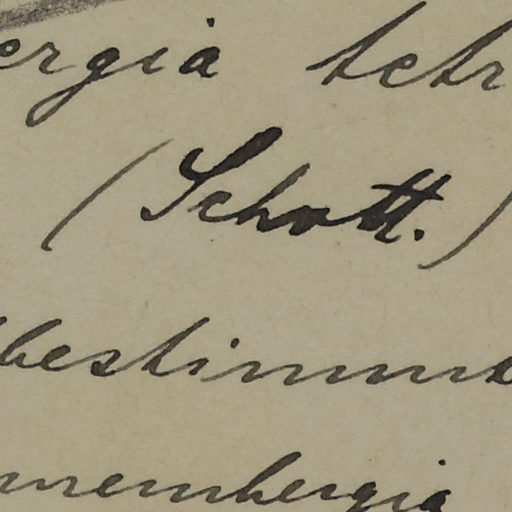 ergia tetr
(Schott.)
bestimm
nnembergia